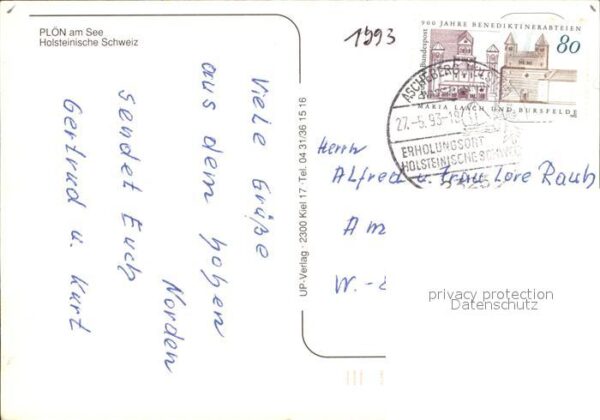 PLÖN am See
Holsteinische Schweiz
Viele Grüße
aus dem hohen
Norden
sendet Euch
Gertrud u. Kurt
UP-Verlag · 2300 Kiel 17 · Tel. 04 31/36 15 16
1993
900 JAHRE BENEDIKTINERABTEIEN
Deutsche Bundespost
80
MARIA LAACH UND BURSFELDE
ASCHEBERG
27.-5.93-18
ERHOLUNGSORT
HOLSTEINISCHE SCHWEIZ
Herrn
Alfred u. Frau Lore Raub
Am
W.-
privacy protection
Datenschutz